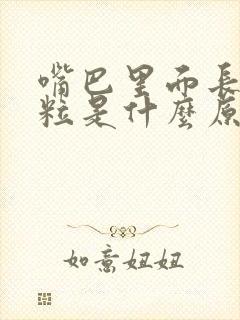 嘴巴里而長
粒是什麼原
如意妞妞